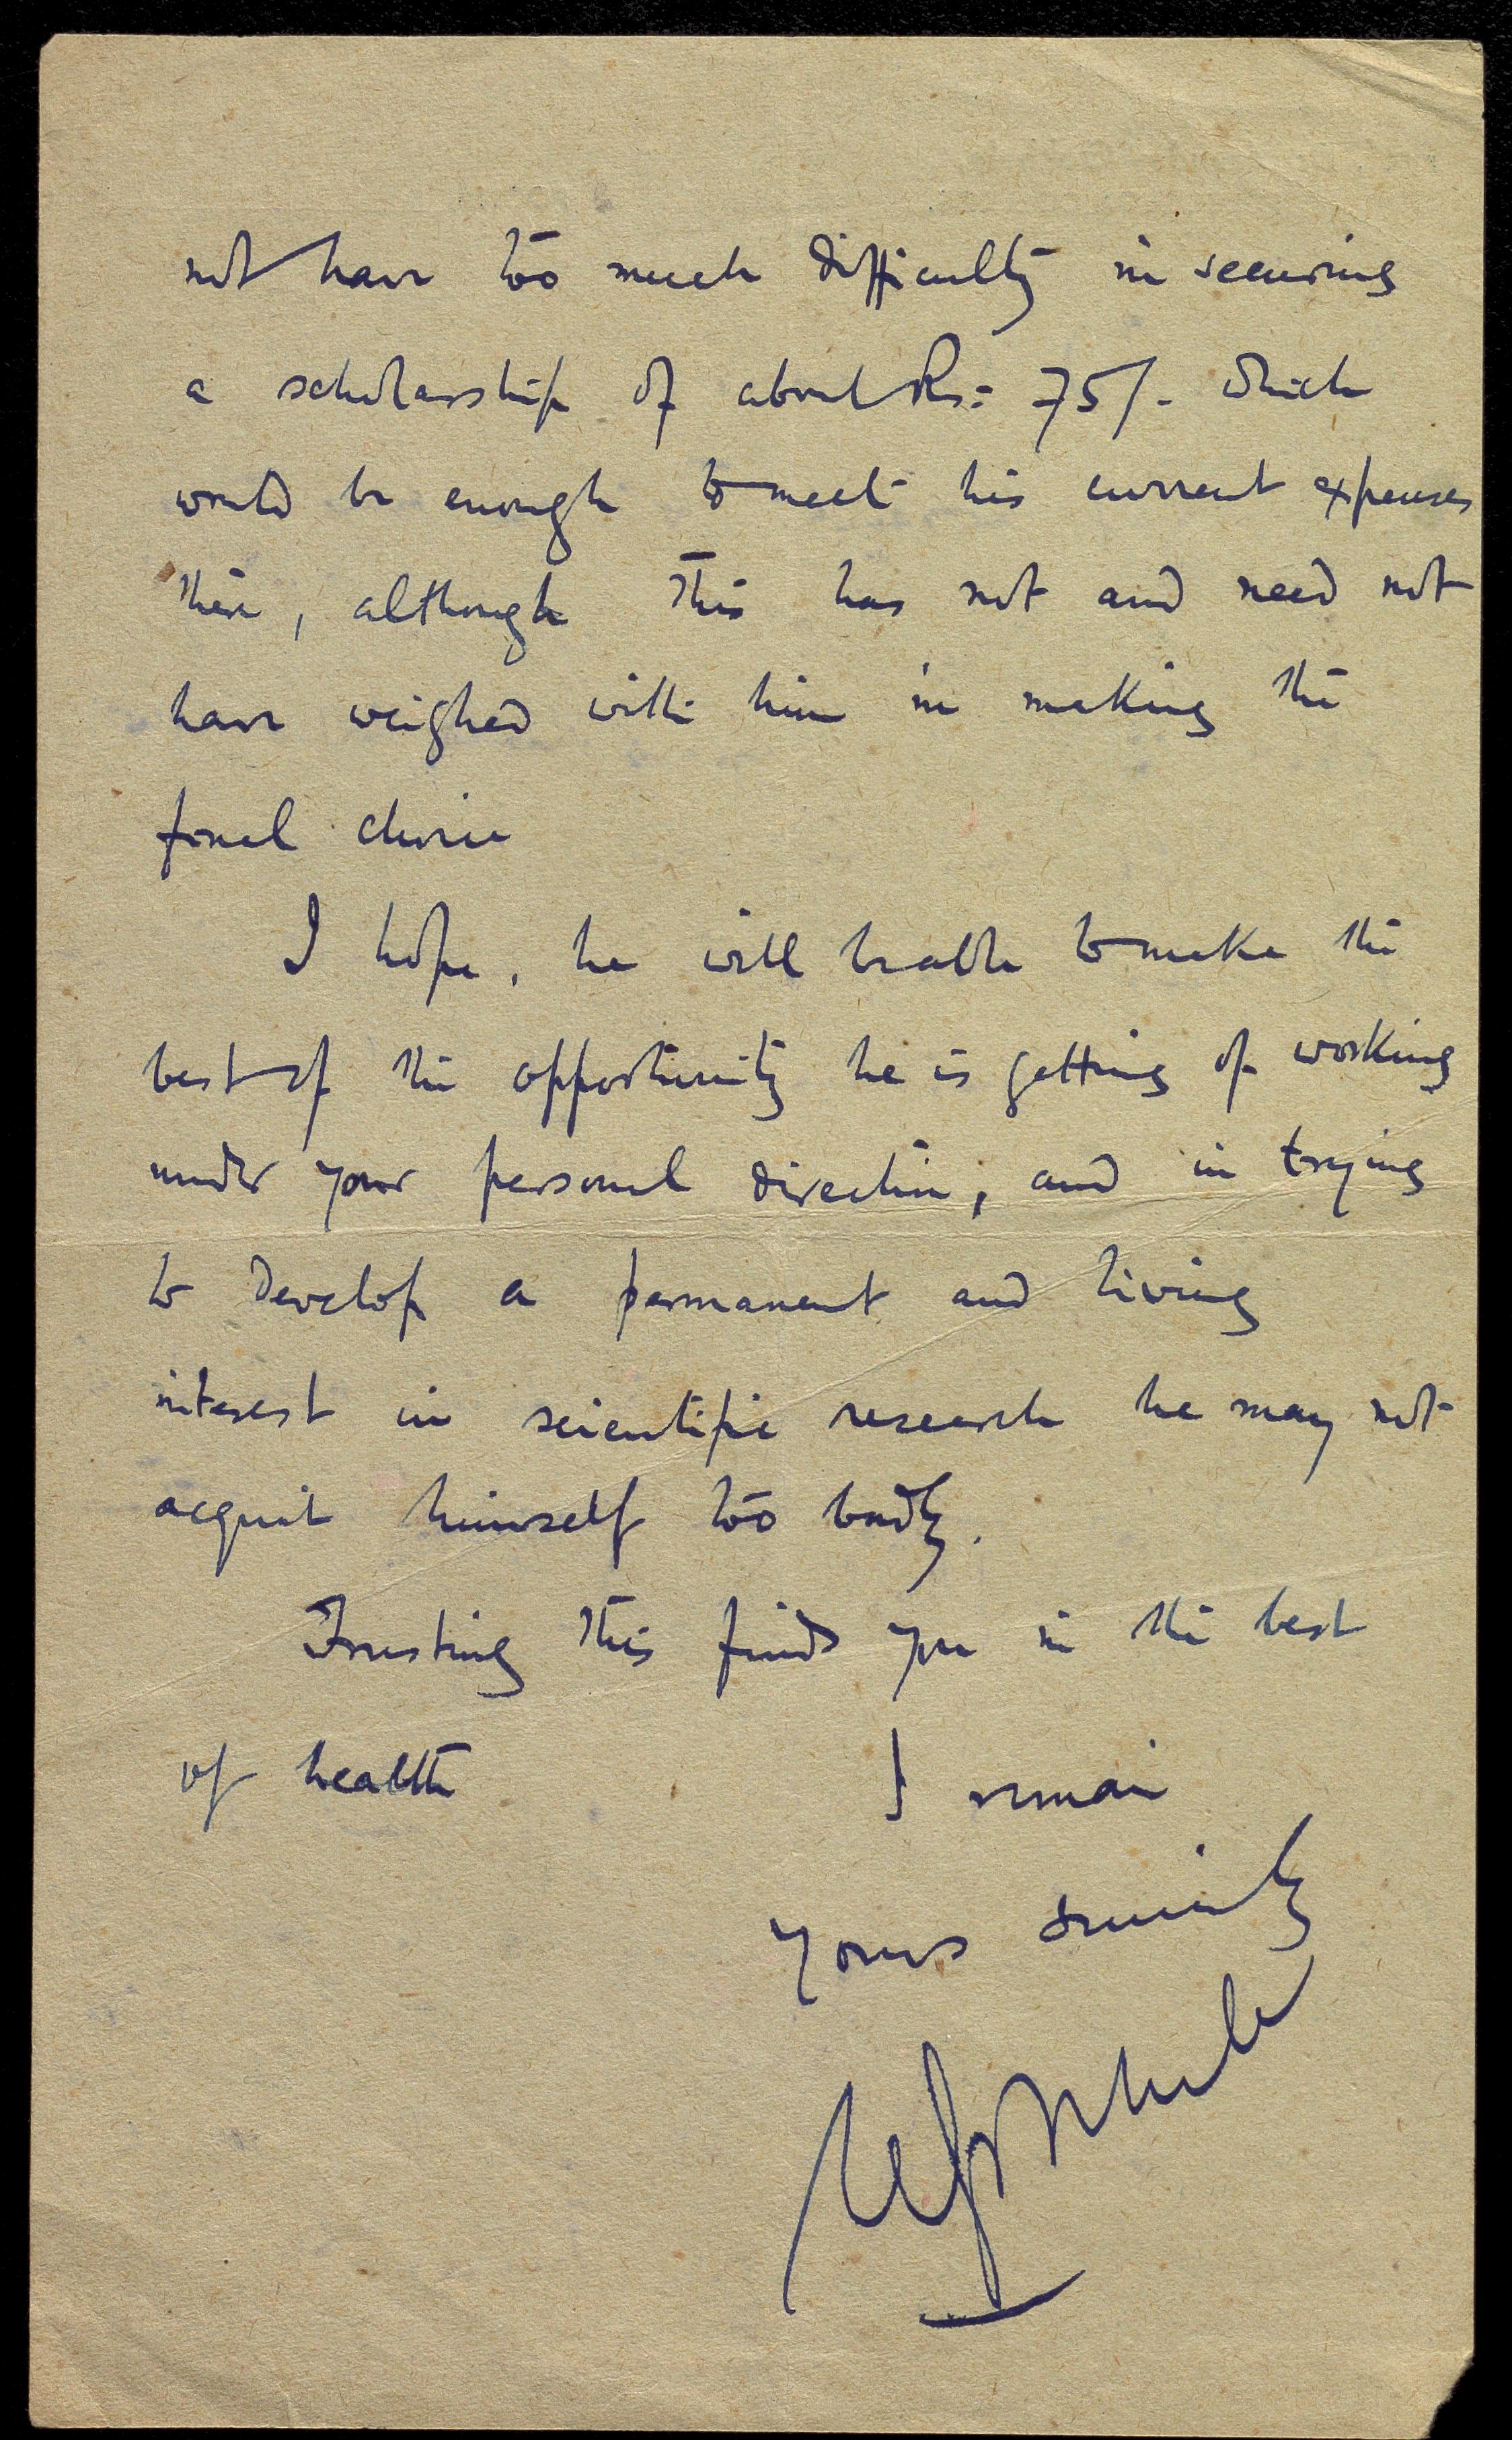 not have too much difficulty in securing
a scholarship of about Rs: 75/- which
would be enough to meet his current expenses
there, although this has not and need not
have weighed with him in making the
final choice
I hope, he will be able to make the
best of the opportunity he is getting of working
under your personal direction, and in trying
to develop a permanent and living
interest in scientific research he may not
acquit himself too badly.
Trusting this finds you in the best
of health I remain
yours sincerely